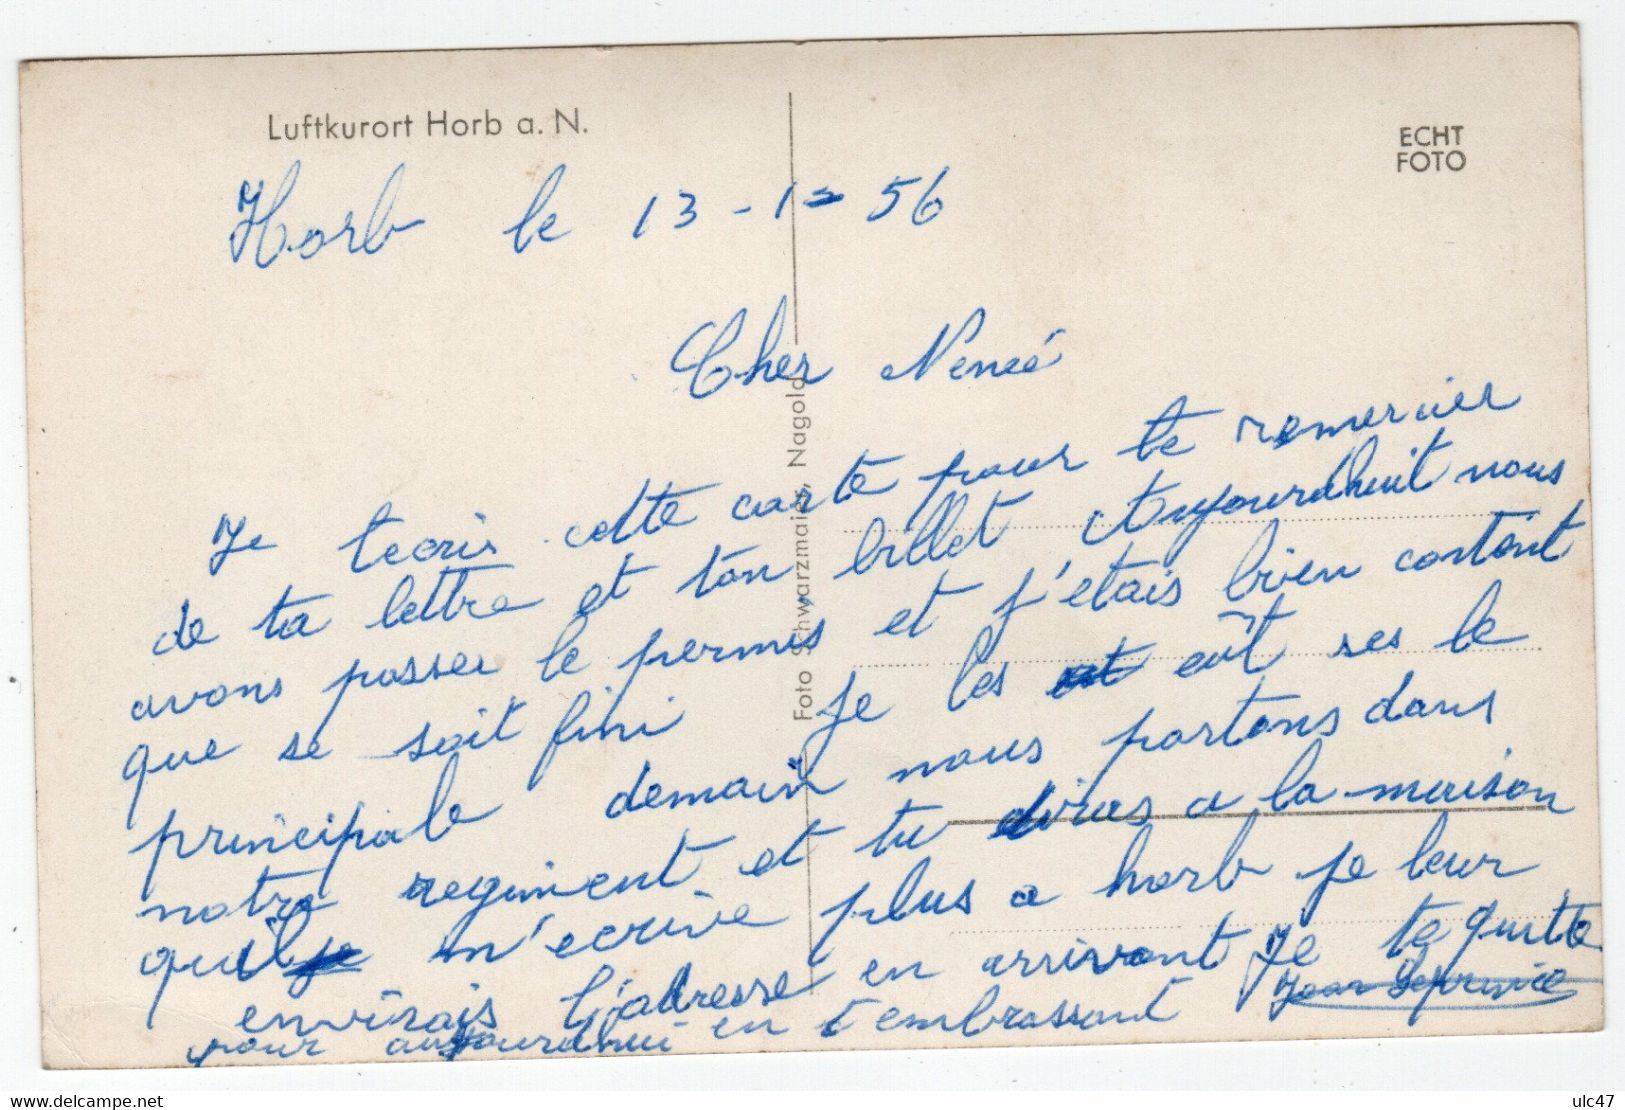 Luftkurort Horb a. N.
ECHT
FOTO
Horb le 13-12 56
Cher Nené
Je tecris cette carte pour te remercier
de ta lettre et ton billet Aujourdhuit nous
avons passer le permis et j'étais bien content
que se soit fini je les eût ses le
principale demain nous partons dans
notre regiment et tu diras a la maison
quil m'ecrive plus a horb je leur
envirais l'adresse en arrivant Je te quitte
pour aujourdhui en t'embrassant Jean
Foto Schwarzmaier, Nagold
www.delcampe.net
ulc47